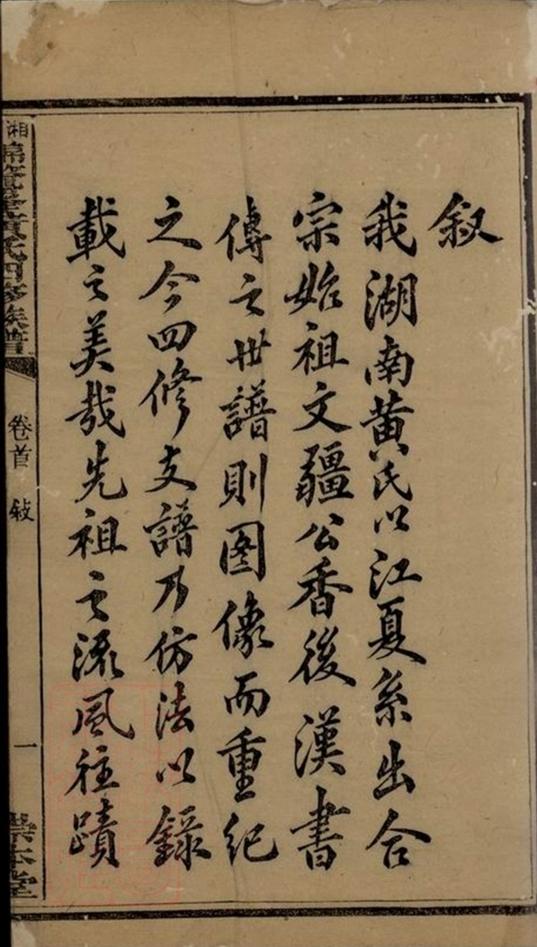 叙
我湖南黄氏以江夏系出合
宗始祖文疆公香後漢書
傳之世譜則图像而重纪
之今四修支譜乃仿法以錄
載之美哉先祖之流風往蹟
湘
黃氏四修族譜
卷首 敍
一
崇本堂